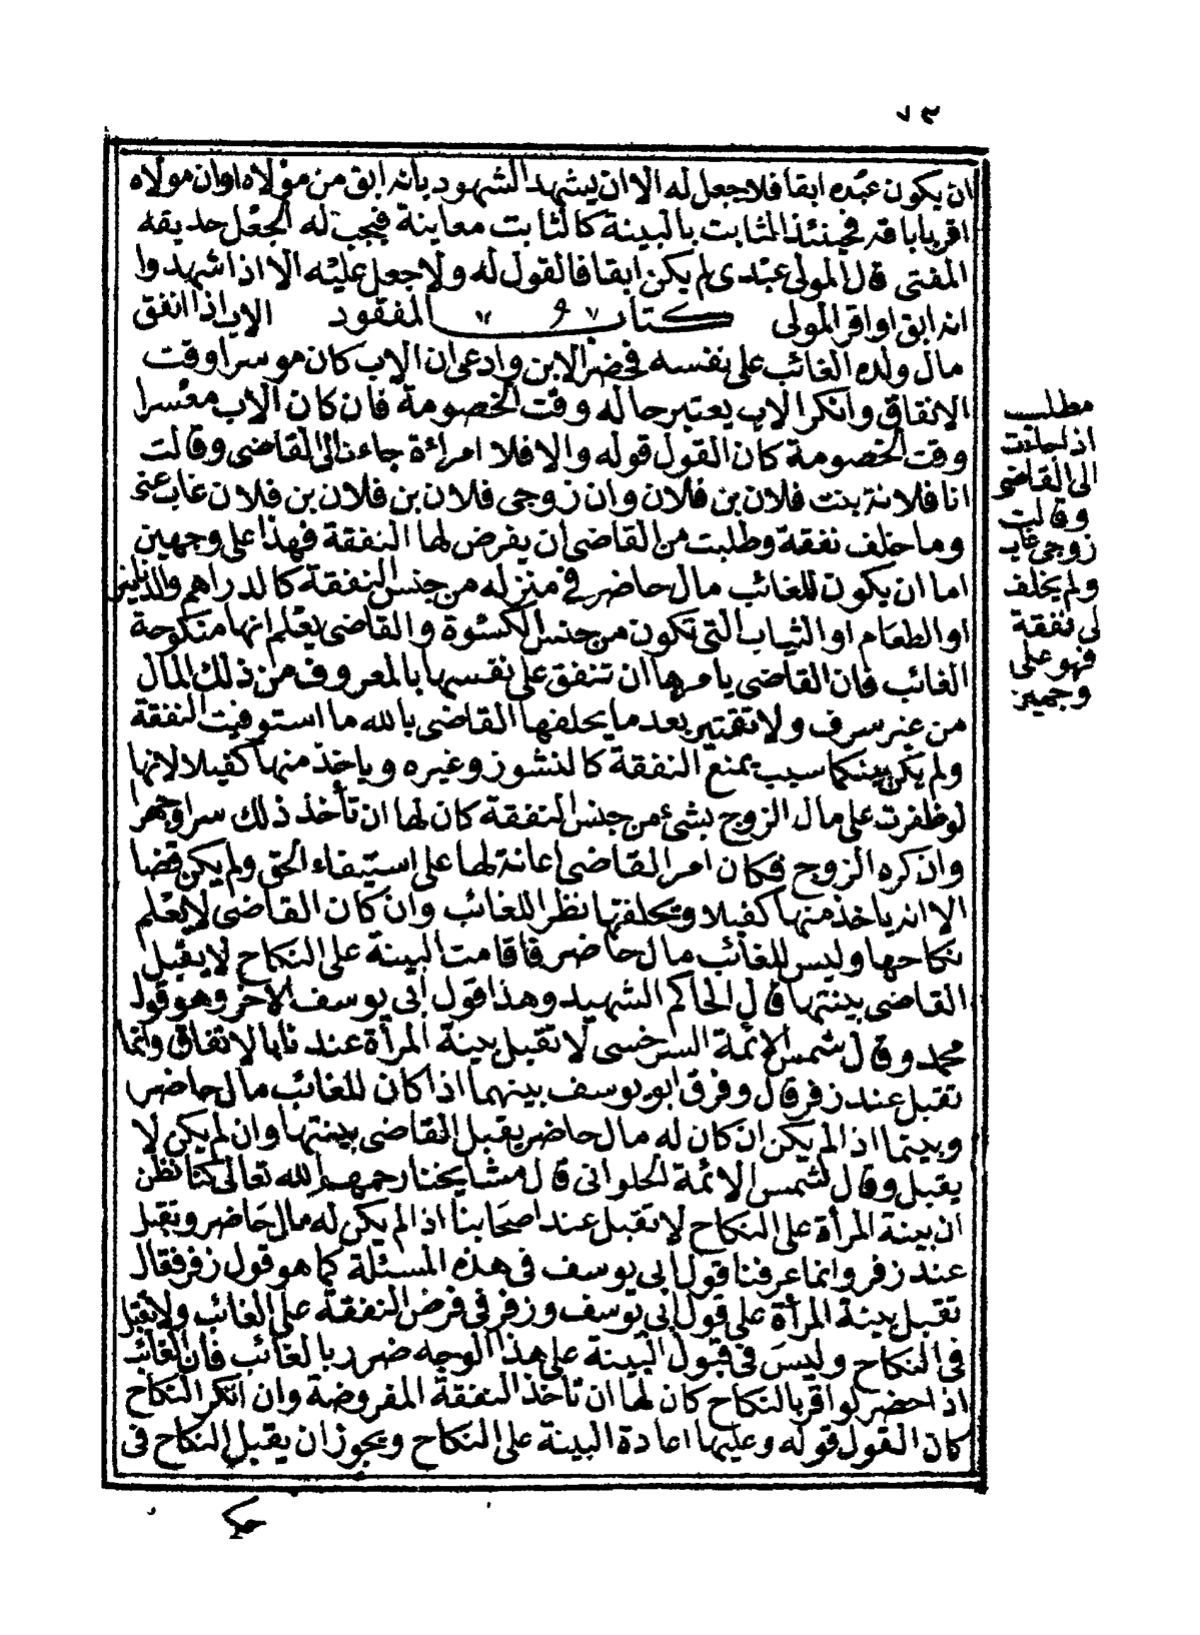 ٧٣
ان يكون عبده ابقا فلا جعل له الا ان يشهد الشهود بانه ابق من مولاه او ان مولاه
اقر باباقه فحينئذ الثابت بالبينة كالثابت معاينة فيجب له الجعل حديقه
المفتى قال المولى عبدى لم يكن ابقا فالقول له ولا جعل عليه الا اذا شهدوا
انه ابق او اقر المولى كتاب المفقود الاب اذا انفق
مال ولده الغائب على نفسه فحضر الابن وادعى ان الاب كان موسرا وقت
الانفاق وانكر الاب يعتبر حاله وقت الخصومة فان كان الاب معسرا
وقت الخصومة كان القول قوله والا فلا امرأة جاءت الى القاضى وقالت
انا فلانة بنت فلان بن فلان وان زوجى فلان بن فلان بن فلان غاب عنى
وما خلف نفقة وطلبت من القاضى ان يفرض لها النفقة فهذا على وجهين
اما ان يكون للغائب مال حاضر فى منزله من جنس النفقة كالدراهم والدنانير
او الطعام او الثياب التى تكون من جنس الكسوة والقاضى يعلم انها منكوحة
الغائب فان القاضى يامرها ان تنفق على نفسها بالمعروف من ذلك المال
من غير سرف ولا تقتير بعد ما يحلفها القاضى بالله ما استوفيت النفقة
ولم يكن بينكما سبب يمنع النفقة كالنشوز وغيره وياخذ منها كفيلا لانها
لو ظفرت على مال الزوج بشئ من جنس النفقة كان لها ان تأخذ ذلك سرا وجهرا
وان كره الزوج فكان امر القاضى اعانة لها على استيفاء الحق ولم يكن قضا
الا انه ياخذ منها كفيلا وتحلفها نظرا للغائب وان كان القاضى لا يعلم
نكاحها وليس للغائب مال حاضر فاقامت البينة على النكاح لا يقبل
القاضى بينتها قال الحاكم الشهيد وهذا قول ابى يوسف الاخر وهو قول
محمد وقال شمس الائمة السرخسى لا تقبل بينة المرأة عندنا بالاتفاق وانما
تقبل عند زفر قال وفرق ابو يوسف بينهما اذا كان للغائب مال حاضر
وبينما اذا لم يكن ان كان له مال حاضر يقبل القاضى بينتها وان لم يكن لا
يقبل وقال شمس الائمة الحلوانى قال مشايخنا رحمهم الله تعالى كنا نظن
ان بينة المرأة على النكاح لا تقبل عند اصحابنا اذا لم يكن له مال حاضر وتقبل
عند زفر وانما عرفنا قول ابى يوسف فى هذه المسئلة كما هو قول زفر فقال
تقبل بينة المرأة على قول ابى يوسف وزفر فى فرض النفقة على الغائب ولا تقبل
فى النكاح وليس فى قبول البينة على هذا الوجه ضرر بالغائب فان الغائب
اذا حضر لو اقر بالنكاح كان لها ان تأخذ النفقة المفروضة وان انكر النكاح
كان القول قوله وعليها اعادة البينة على النكاح ويجوز ان يقبل النكاح فى
مطلب
اذا جائت
الى القاضى
وقالت
زوجى غاب
ولم يخلف
لى نفقة
فهو على
وجهين
حكم